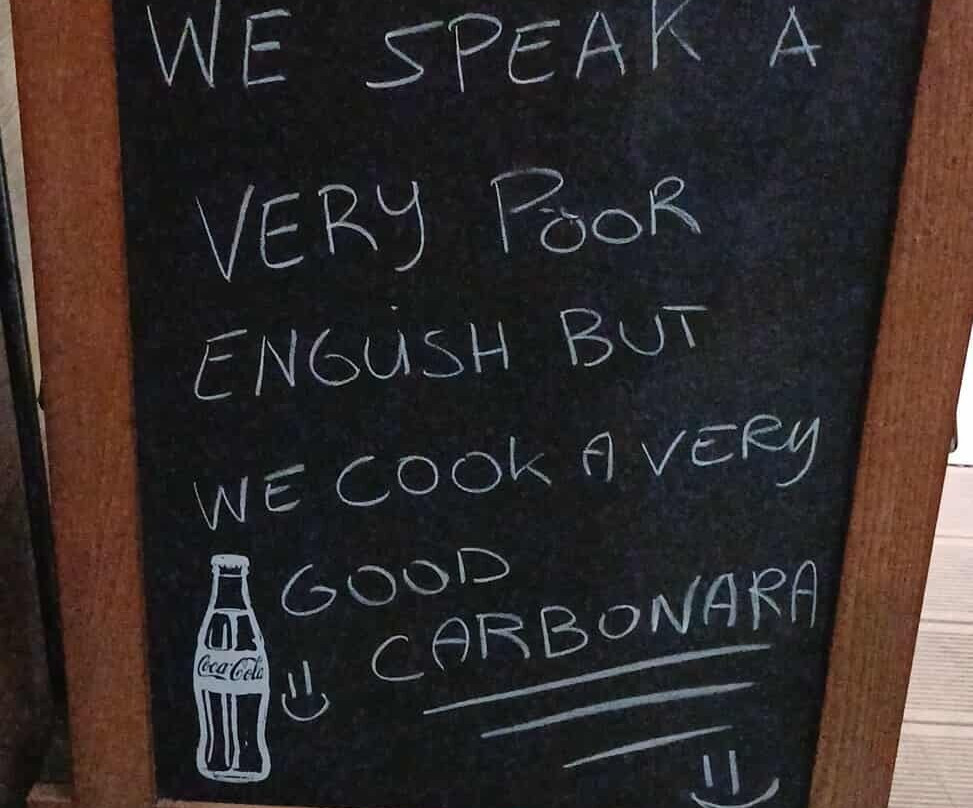 WE SPEAK A
VERY POOR
ENGLISH BUT
WE COOK A VERY
GOOD
CARBONARA
Coca-Cola